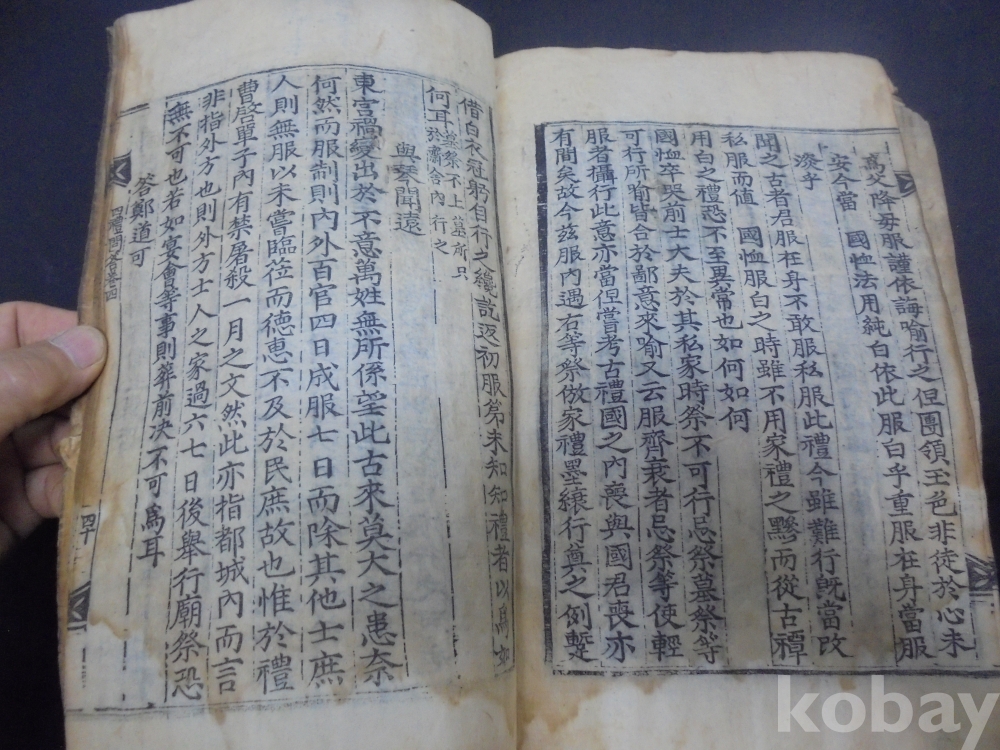 爲父降母服謹依誨喻行之但團領玉色非徒於心未
安今當 國恤法用純白依此服白乎重服在身當服
淡乎
聞之古者君服在身不敢服私服此禮今雖難行旣當改
私服而値 國恤服白之時雖不用家禮之黲而從古禫
用白之禮恐不至異常也如何如何
國恤卒哭前士大夫於其私家時祭不可行忌祭墓祭等
可行所喻皆合於鄙意來喻又云服齊衰者忌祭等使輕
服者攝行此意亦當但嘗考古禮國之內喪與國君喪亦
有間矣故今玆服內遇右等祭倣家禮墨縗行奠之例蹔
借白衣冠躬自行之纔訖返初服第未知知禮者以爲如
何耳墓祭不上墓所只
於齋舍內行之
與琴聞遠
東宮禍變出於不意萬姓無所係望此古來莫大之患奈
何然而服制則內外百官四日成服七日而除其他士庶
人則無服以未嘗臨莅而德惠不及於民庶故也惟於禮
曹啓單子內有禁屠殺一月之文然此亦指都城內而言
非指外方也則外方士人之家過六七日後擧行廟祭恐
無不可也若如宴會等事則葬前决不可爲耳
答鄭道可
四禮問答卷四
四十
kobay